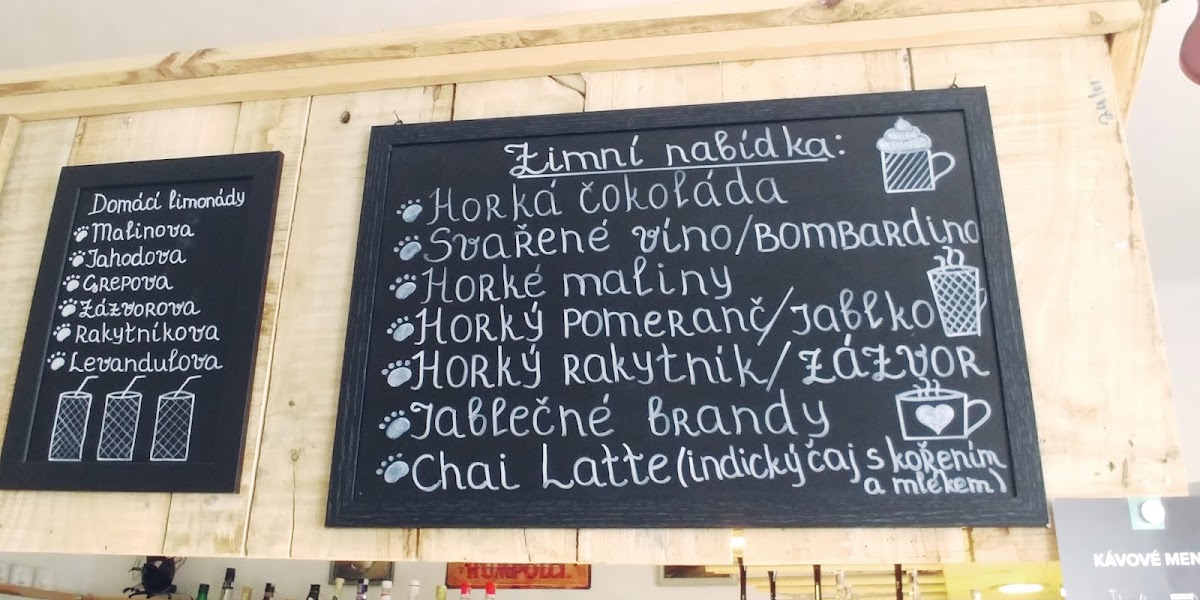 Domácí limonády
Malinova
Jahodova
Grepova
Zázvorova
Rakytníkova
Levandulova
Zimní nabídka:
Horká čokoláda
Svařené víno/Bombardino
Horké maliny
Horký pomeranč/Jablko
Horký rakytník/ZÁZVOR
Jablečné brandy
Chai Latte (indický čaj s kořením
a mlékem)
HUMPOLC
KÁVOVÉ MEN